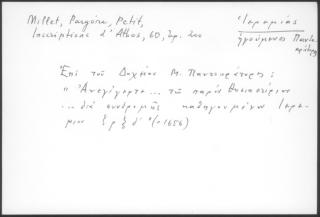 Millet, Pargoire, Petit,
Inscriptions d'Athos, 60, Ἀρ. 200
Ἱερεμίας
ἡγούμενος Παντο-
κράτορος
Ἐπὶ τοῦ Δοχείου Μ. Παντοκράτορος:
"Ἀνεγήγερτε... τῶ παρὸν θυσιαστήριον
... διὰ συνδρομῆς καθηγουμένου Ἱερε-
μίου
(=1656)